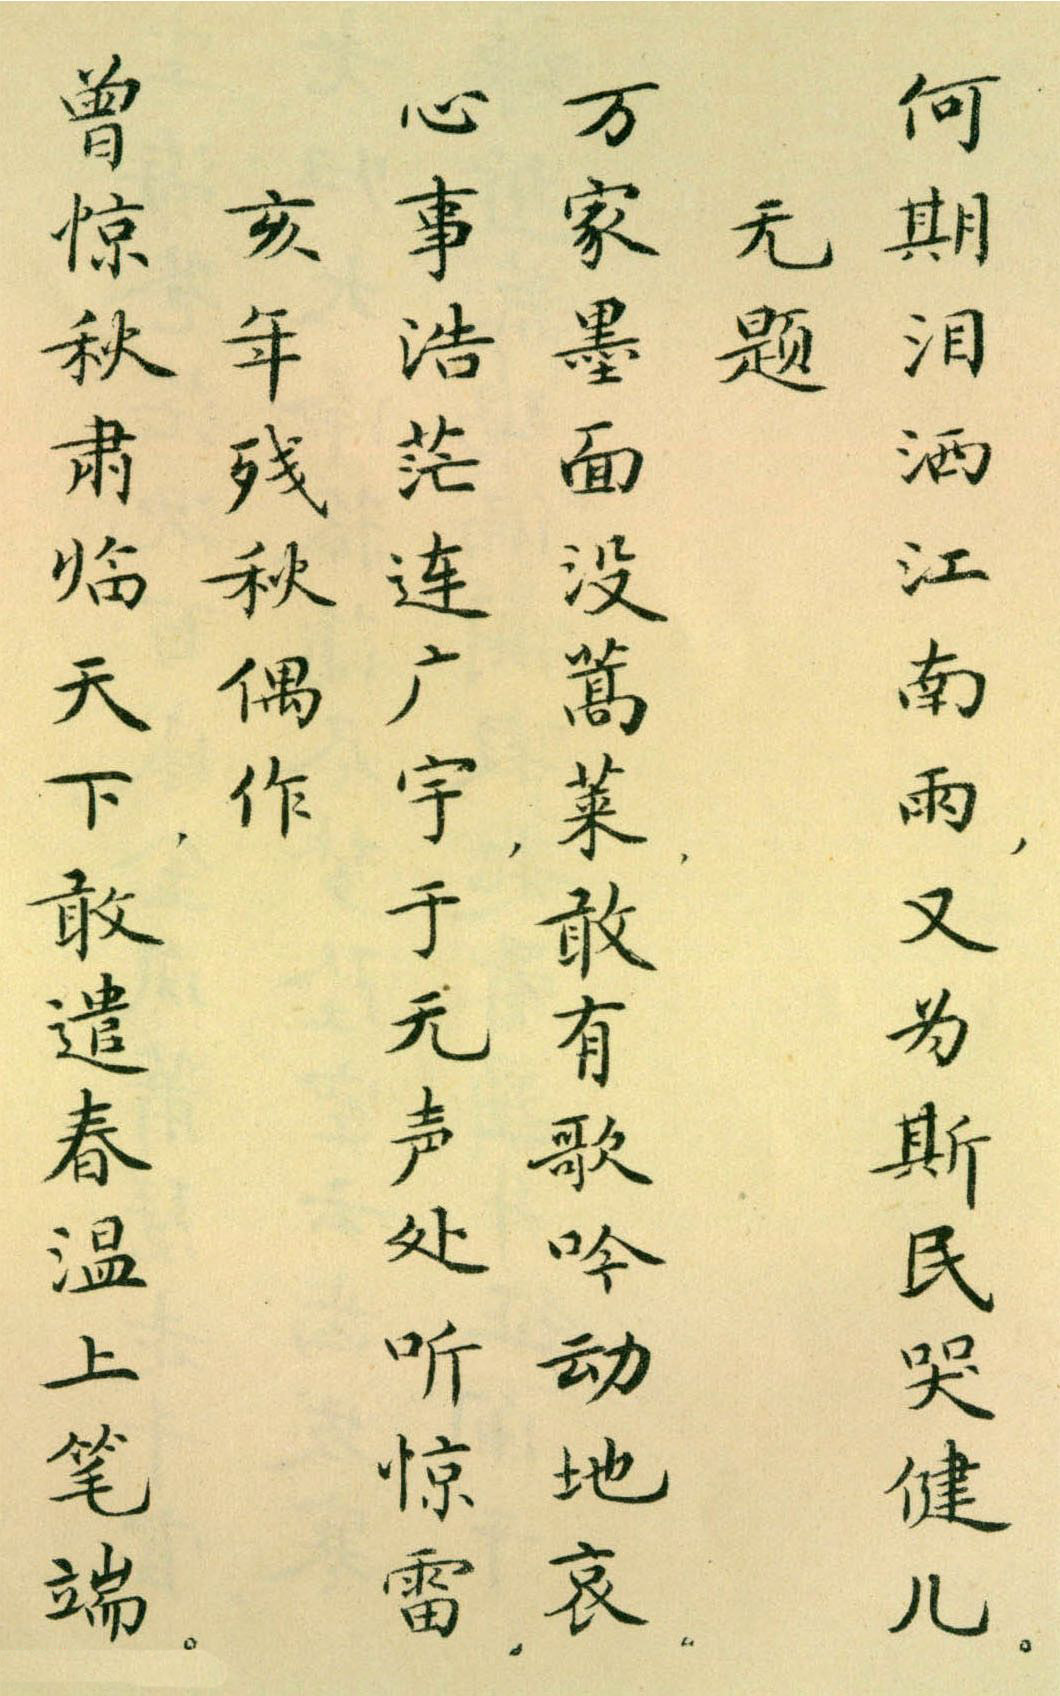 何期泪洒江南雨，又为斯民哭健儿。
无题
万家墨面没蒿莱，敢有歌吟动地哀。
心事浩茫连广宇，于无声处听惊雷。
亥年残秋偶作
曾惊秋肃临天下，敢遣春温上笔端。